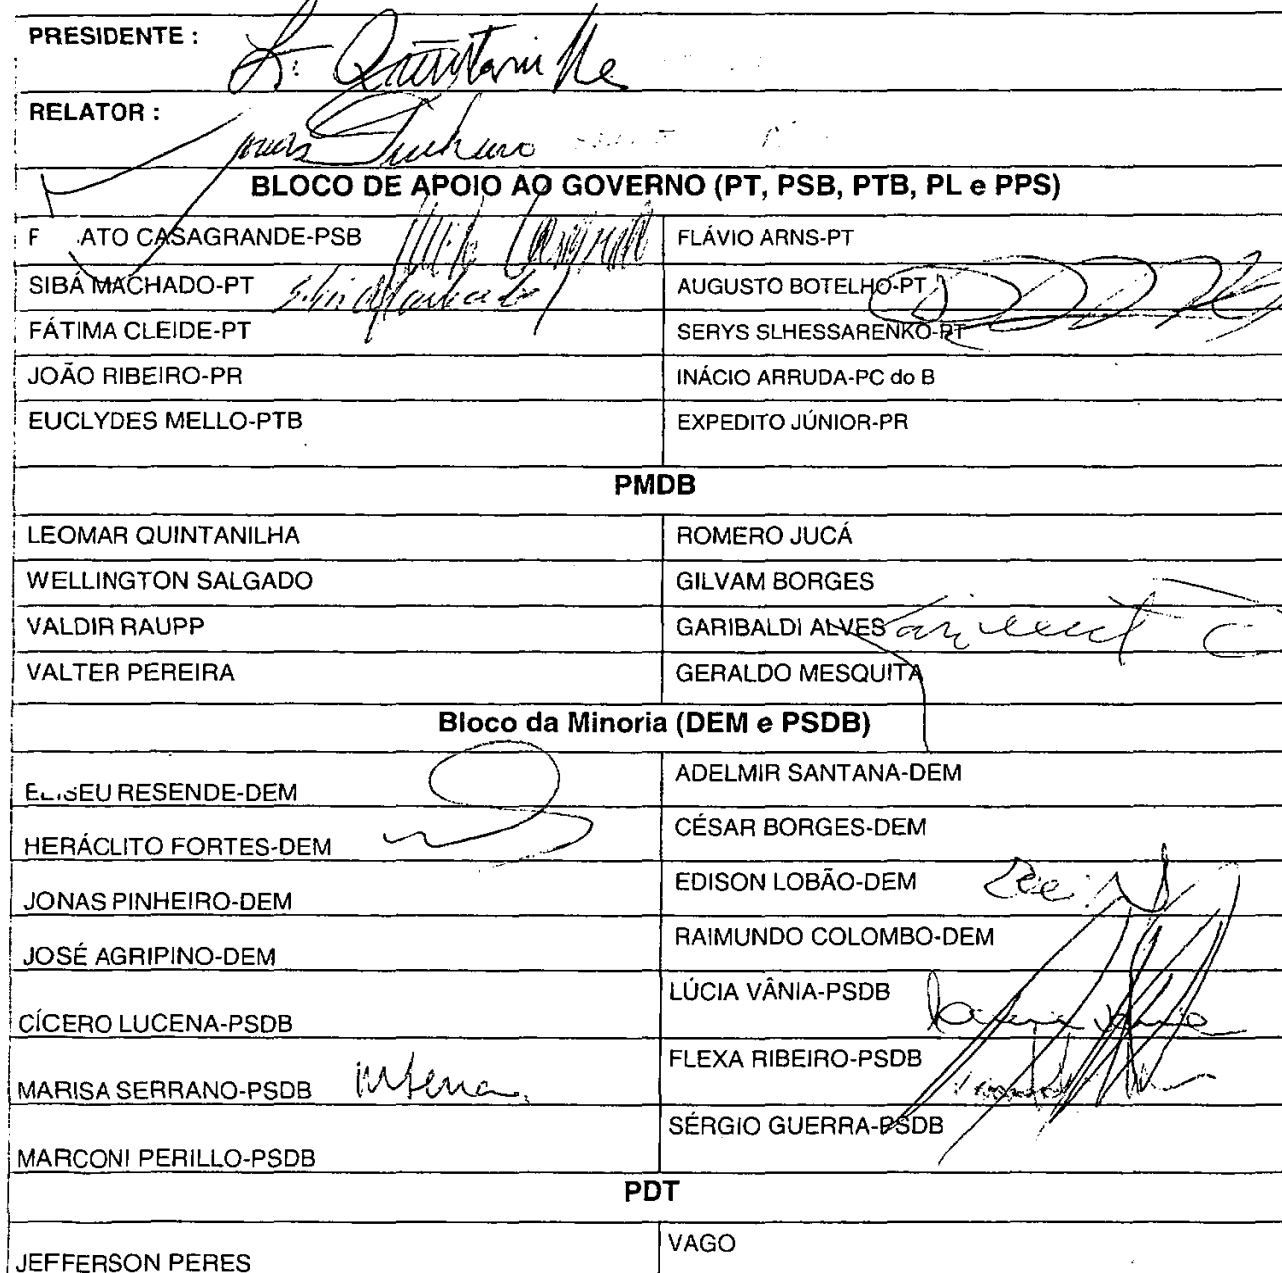 PRESIDENTE :
L. Quintanilha
RELATOR :
Jonas Pinheiro
BLOCO DE APOIO AO GOVERNO (PT, PSB, PTB, PL e PPS)
F ATO CASAGRANDE-PSB FLÁVIO ARNS-PT
SIBÁ MACHADO-PT Sibá Machado AUGUSTO BOTELHO-PT
FÁTIMA CLEIDE-PT SERYS SLHESSARENKO-PT
JOÃO RIBEIRO-PR INÁCIO ARRUDA-PC do B
EUCLYDES MELLO-PTB EXPEDITO JÚNIOR-PR
PMDB
LEOMAR QUINTANILHA ROMERO JUCÁ
WELLINGTON SALGADO GILVAM BORGES
VALDIR RAUPP GARIBALDI ALVES
VALTER PEREIRA GERALDO MESQUITA
Bloco da Minoria (DEM e PSDB)
ELISEU RESENDE-DEM ADELMIR SANTANA-DEM
HERÁCLITO FORTES-DEM CÉSAR BORGES-DEM
JONAS PINHEIRO-DEM EDISON LOBÃO-DEM
JOSÉ AGRIPINO-DEM RAIMUNDO COLOMBO-DEM
CÍCERO LUCENA-PSDB LÚCIA VÂNIA-PSDB
MARISA SERRANO-PSDB FLEXA RIBEIRO-PSDB
MARCONI PERILLO-PSDB SÉRGIO GUERRA-PSDB
PDT
JEFFERSON PERES VAGO